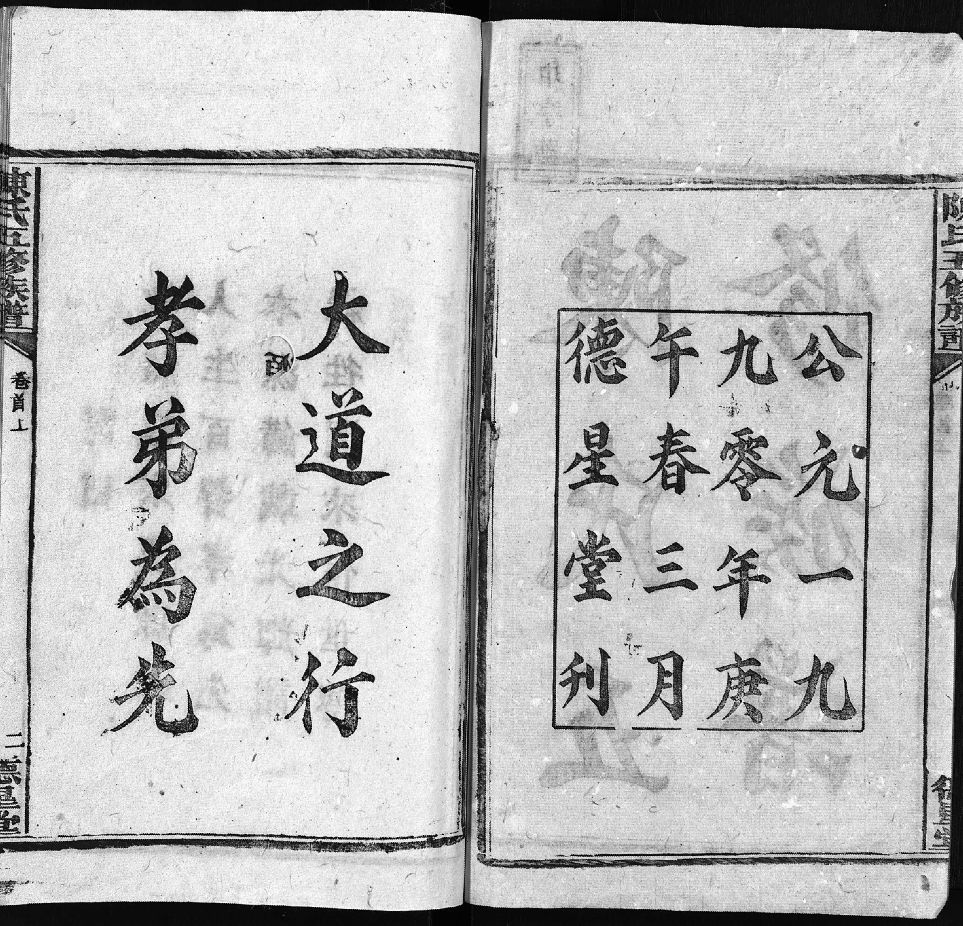 公元一九
九零年庚
午春三月
德星堂刊
大道之行
孝弟為先
陳氏五修族譜
卷首上
二
德星堂